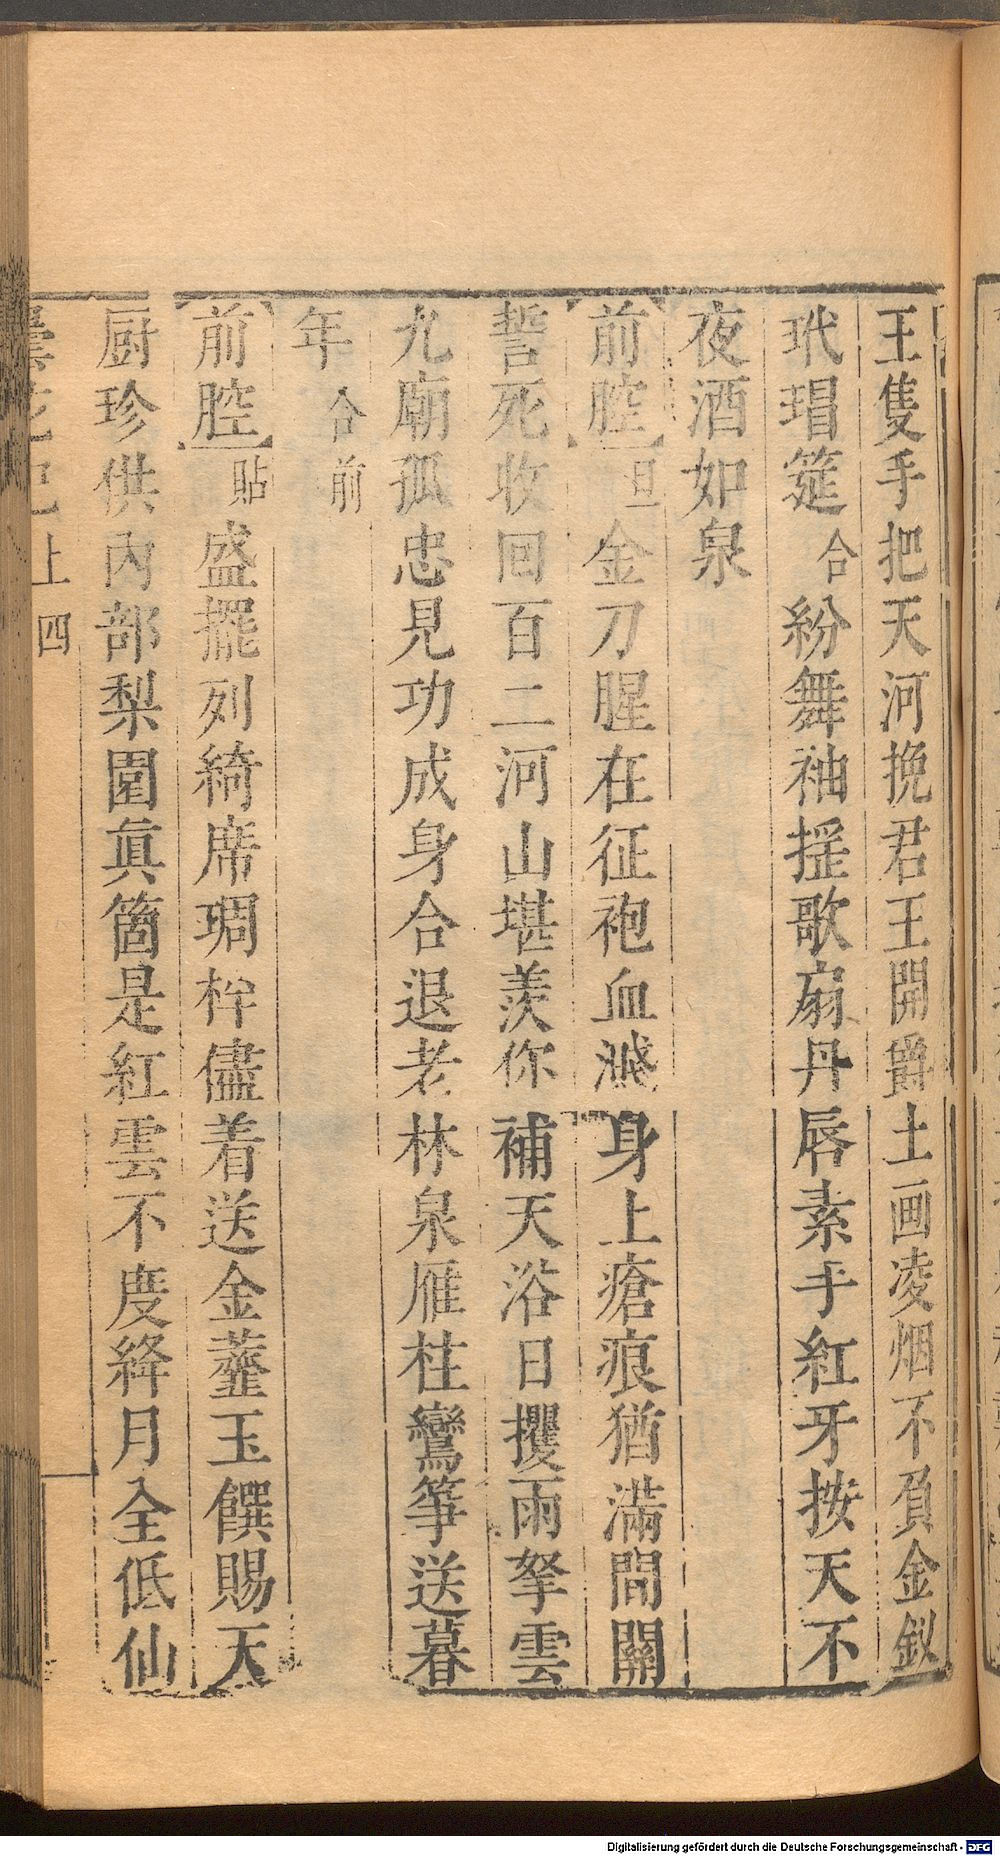 王隻手把天河挽君王開爵土画凌烟不負金釵
玳瑁筵合紛舞袖揺歌扇丹唇素手紅牙按天不
夜酒如泉
前腔旦金刀腥在征袍血濺身上瘡痕猶滿間關
誓死收回百二河山堪羨你補天浴日攫雨拏雲
九廟孤忠見功成身合退老林泉雁柱鸞箏送暮
年合前
前腔貼盛擺列綺席琱柈儘着送金虀玉饌賜天
厨珍供內部梨園眞箇是紅雲不度絳月全低仙
曇花記上四
Digitalisierung gefördert durch die Deutsche Forschungsgemeinschaft - DFG